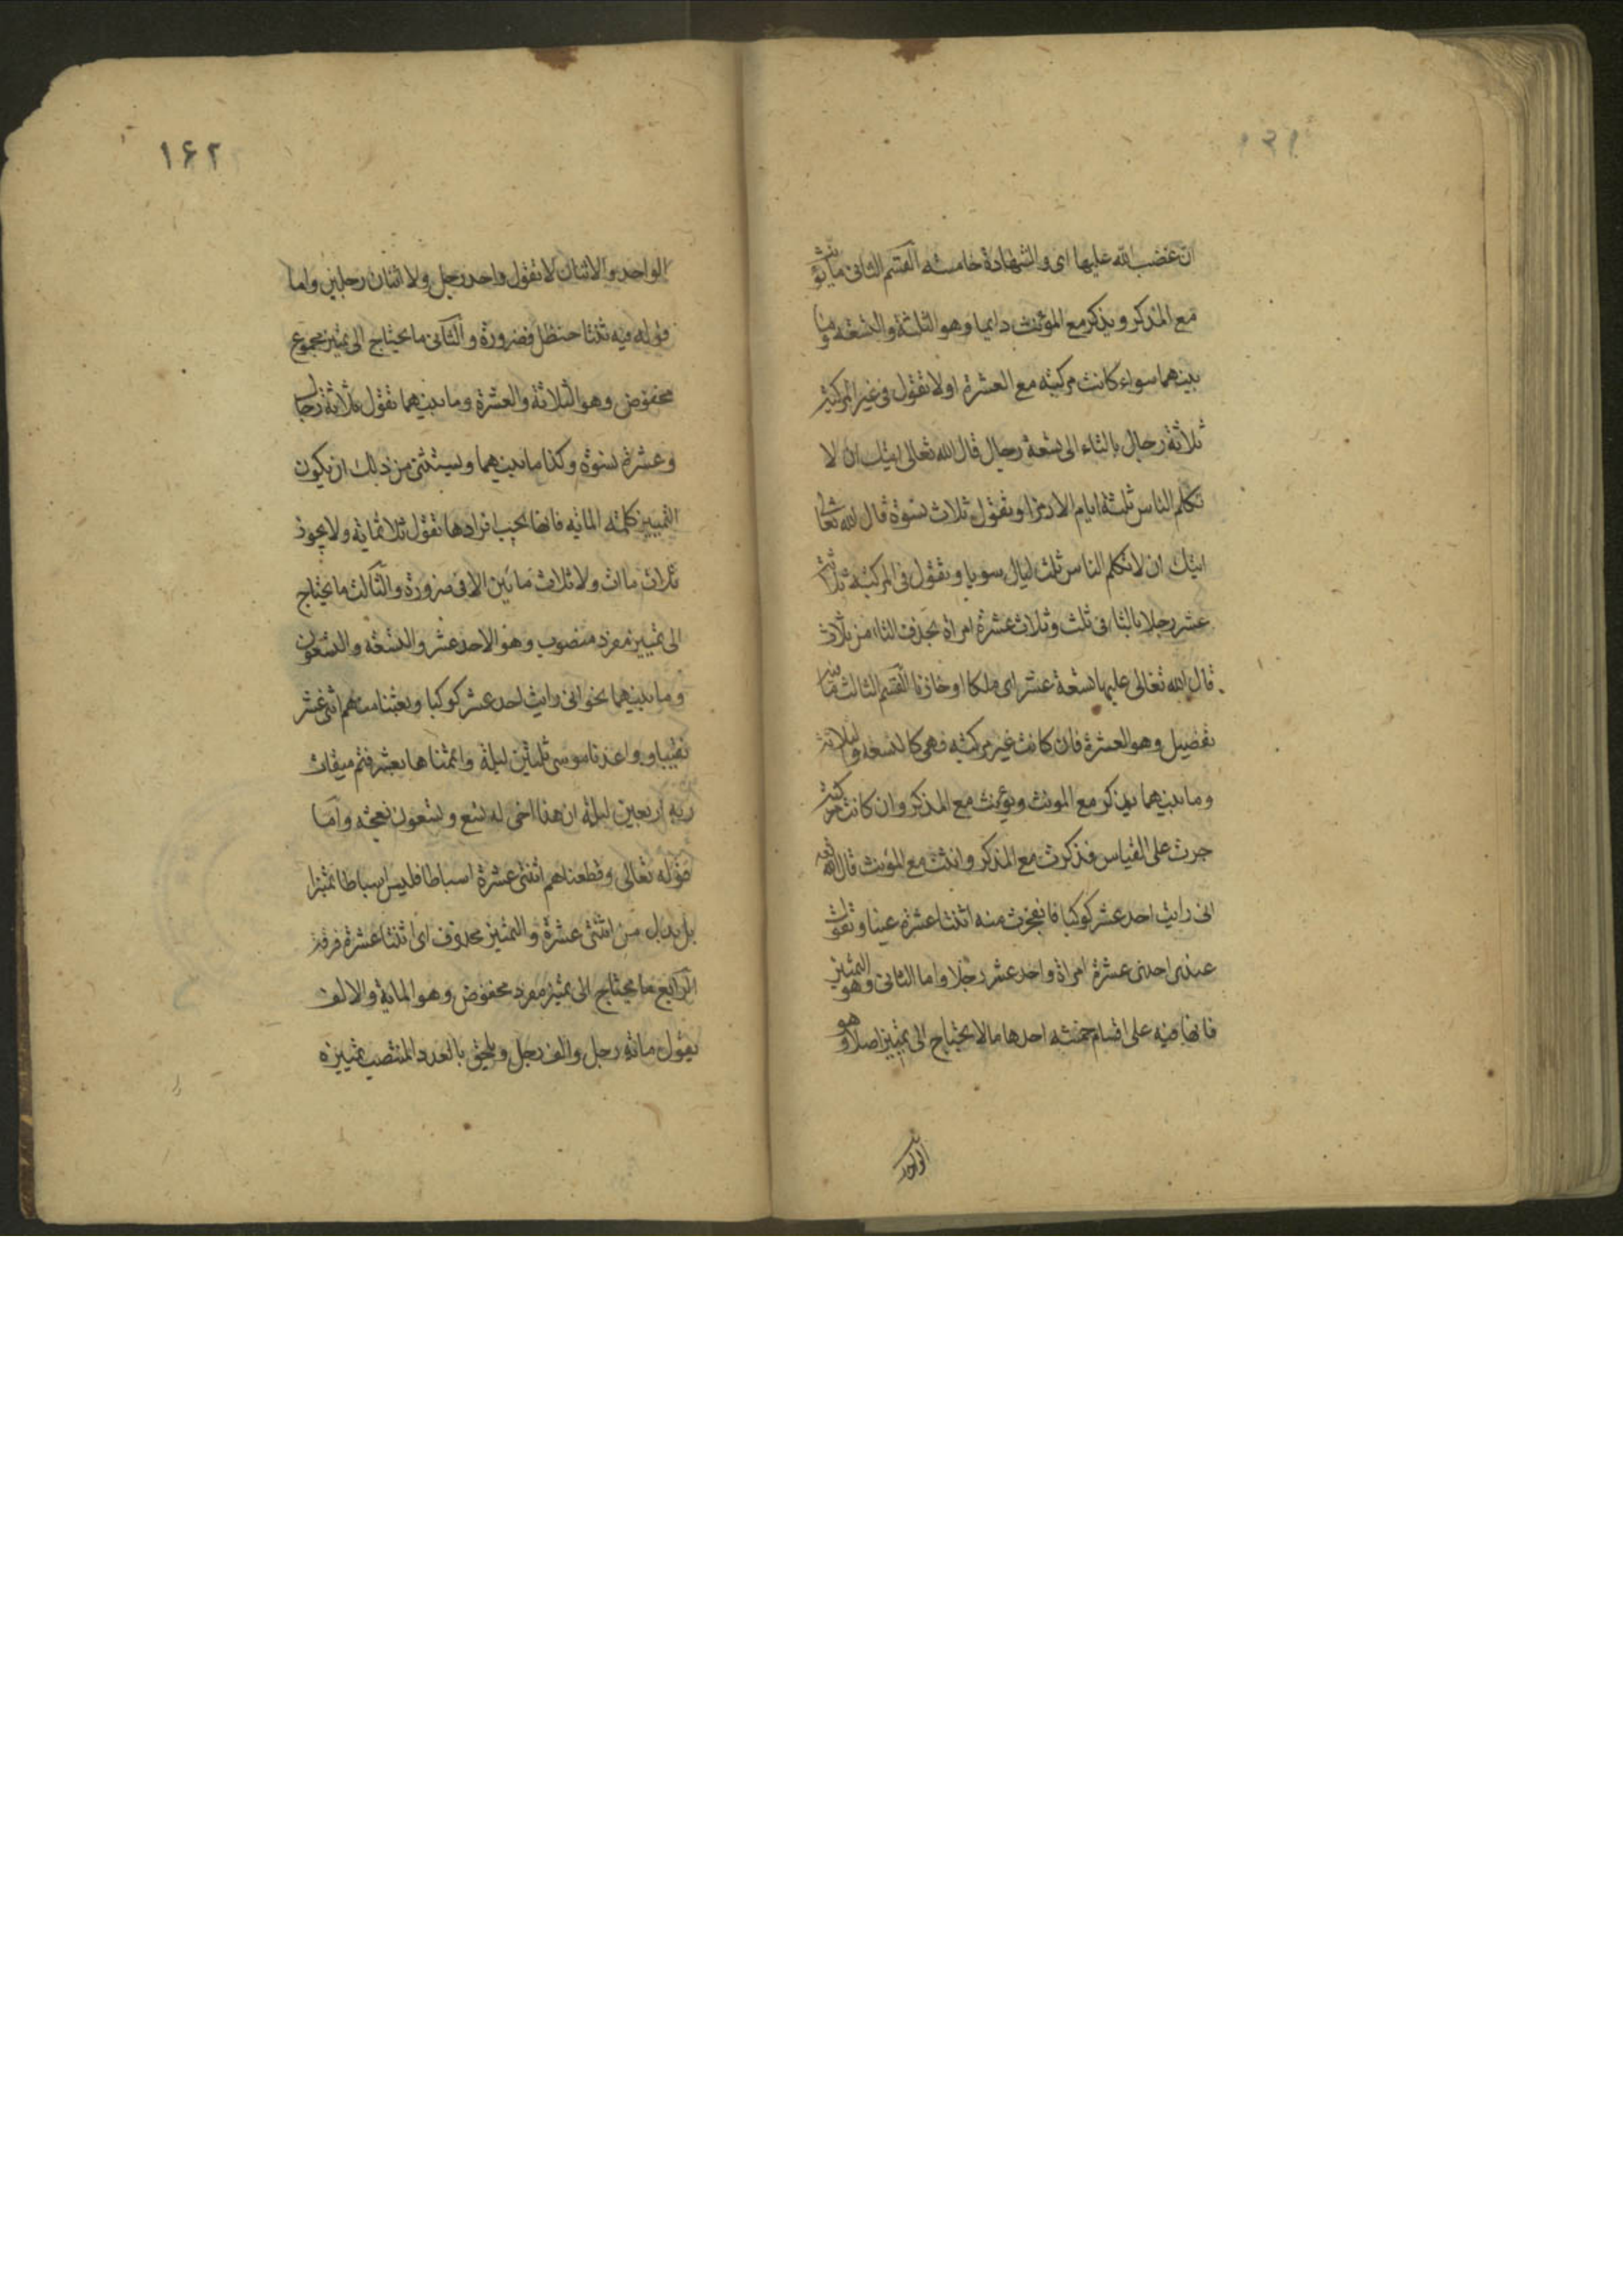 ان غضب الله عليها اى والشهادة خامسته القسم الثانى ما يؤنث
مع المذكر و يذكر مع المؤنث دايما وهو الثلثة والتسعة وما
بينهما سواء كانت مركبة مع العشرة او لا تقول فى غير المركبة
ثلاثة رجال بالتاء الى تسعة رجال قال الله تعالى ايتك ان لا
تكلم الناس ثلثة ايام الا رمزا و تقول ثلاث نسوة قال الله تعالى
ايتك ان لا تكلم الناس ثلث ليال سويا و تقول فى المركبة ثلاثة
عشر رجلا بالتا فى ثلث و ثلاث عشرة امراة بحذف التاء من ثلاث
قال الله تعالى عليها تسعة عشر اى ملكا او خازنا القسم الثالث ما فيه
تفصيل وهو العشرة فان كانت غير مركبة فهى كالتسعة و الثلاثة
وما بينهما يذكر مع المونث ويؤنث مع المذكر وان كانت مركبة
جرت على القياس فذكرت مع المذكر وانثت مع المؤنث قال الله تعه
انى رايت احد عشر كوكبا فانفجرت منه اثنتا عشرة عينا و تقول
عندى احدى عشرة امراة واحد عشر رجلا واما الثانى وهو التمييز
فانها فيه على اقسام خمسة احدها ما لا يحتاج الى تمييز اصلا و هو
الواحد
١۶٢
الواحد و الاثنان لا تقول واحد رجل ولا اثنان رجلين واما
قوله فيه ثنتا حنظل فضرورة و الثانى ما يحتاج الى تمييز مجموع
مخفوض وهو الثلاثة والعشرة وما بينهما تقول ثلاثة رجال
و عشرة نسوة و كذا ما بينهما و يستثنى من ذلك ان يكون
التمييز كلمة الماية فانها يجب افرادها تقول ثلاثماية ولا يجوز
ثلاث مات ولا ثلاث مائين الا فى ضرورة والثالث ما يحتاج
الى تمييز مفرد منصوب وهو الاحد عشر والتسعة والتسعون
وما بينهما نحو انى رايت احد عشر كوكبا و بعثنا منهم اثنى عشر
نقيبا و واعدنا موسى ثلثين ليلة واتممناها بعشر فتم ميقات
ربه اربعين ليلة ان هذا اخى له تسع و تسعون نعجة واما
قوله تعالى وقطعناهم اثنتى عشرة اسباطا فليس اسباطا تمييزا
بل بدل من اثنتى عشرة و التمييز محذوف اى اثنتا عشرة فرقة
الرابع ما يحتاج الى تمييز مفرد مخفوض وهو الماية والالف
تقول مائة رجل والف رجل ويلحق بالعدد المنتصب تمييزه